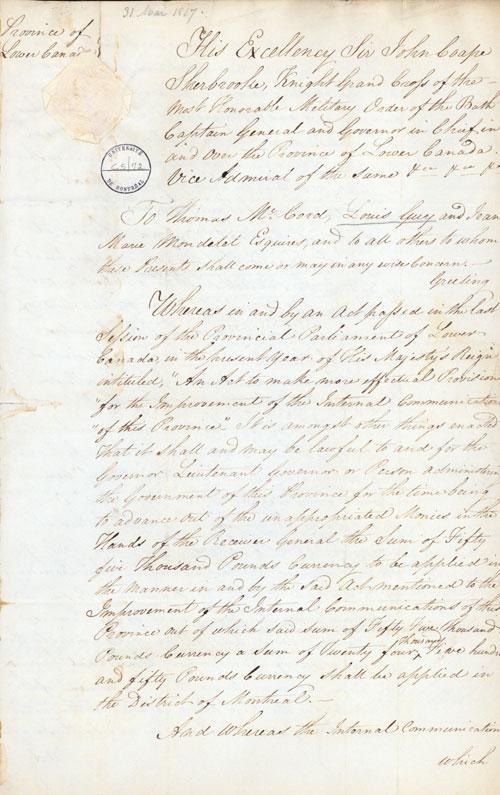 31 Mai 1817.
Province of
Lower Canada
UNIVERSITÉ
DE MONTRÉAL
His Excellency Sir John Coape
Sherbrooke, Knight Grand Cross of the
Most Honorable Military Order of the Bath
Captain General and Governor in Chief in
and over the Province of Lower Canada
Vice Admiral of the same &ca &ca &ca
To Thomas McCord, Louis Guy and Jean
Marie Mondelet Esquires, and to all others to whom
these Presents shall come or may in any wise Concern
Greeting
Whereas in and by an Act passed in the last
Session of the Provincial Parliament of Lower
Canada, in the present Year of His Majesty's Reign
intituled, "An Act to make more effectual Provision
"for the Improvement of the Internal Communication
"of this Province". It is amongst other things enacted
That it shall and may be lawful to and for the
Governor, Lieutenant Governor or Person administering
the Government of this Province for the time being
to advance out of the unappropriated Monies in the
Hands of the Receiver General the Sum of Fifty
five Thousand Pounds Currency to be applied in
the manner in and by the said Act mentioned to the
Improvement of the Internal Communications of the
Province out of which said sum of Fifty Five Thousand
Pounds Currency a Sum of Twenty four thousand Five hundred
and fifty Pounds Currency shall be applied in
the District of Montreal. —
And Whereas the Internal Communication
which